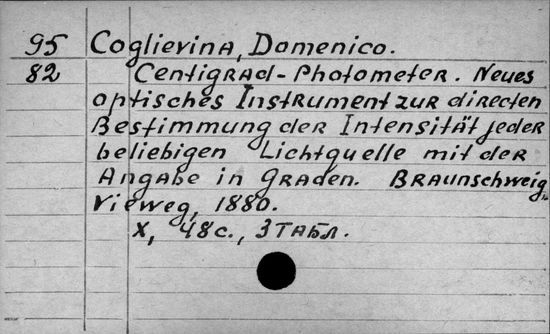 95 Coglievina, Domenico.
82 Centigrad-Photometer. Neues
optisches Instrument zur directen
Bestimmung der Intensität jeder
beliebigen Lichtquelle mit der
Angabe in Graden. Braunschweig,
Vieweg, 1880.
X, 48 с., 3 табл.